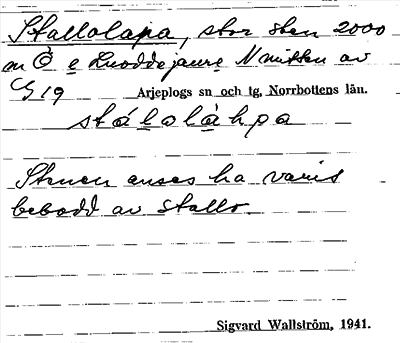 Stallolapa, stor sten 2000
m Ö e Luoddejaure N mitten av
G 19
Arjeplogs sn och tg, Norrbottens län.
stálolàhpa
Stenen anses ha varit
bebodd av stallo.
Sigvard Wallström, 1941.